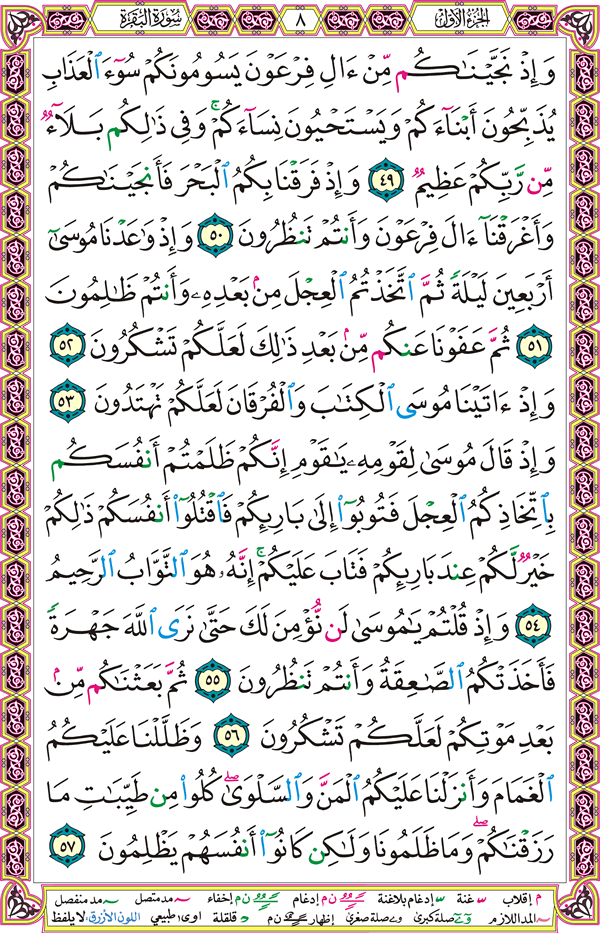 الجزء الأول
٨
سورة البقرة
وَإِذْ نَجَّيْنَٰكُم مِّنْ ءَالِ فِرْعَوْنَ يَسُومُونَكُمْ سُوٓءَ ٱلْعَذَابِ
يُذَبِّحُونَ أَبْنَآءَكُمْ وَيَسْتَحْيُونَ نِسَآءَكُمْ ۚ وَفِى ذَٰلِكُم بَلَآءٌ
مِّن رَّبِّكُمْ عَظِيمٌ ٤٩ وَإِذْ فَرَقْنَا بِكُمُ ٱلْبَحْرَ فَأَنجَيْنَٰكُمْ
وَأَغْرَقْنَآ ءَالَ فِرْعَوْنَ وَأَنتُمْ تَنظُرُونَ ٥٠ وَإِذْ وَٰعَدْنَا مُوسَىٰٓ
أَرْبَعِينَ لَيْلَةً ثُمَّ ٱتَّخَذْتُمُ ٱلْعِجْلَ مِنۢ بَعْدِهِۦ وَأَنتُمْ ظَٰلِمُونَ
٥١ ثُمَّ عَفَوْنَا عَنكُم مِّنۢ بَعْدِ ذَٰلِكَ لَعَلَّكُمْ تَشْكُرُونَ ٥٢
وَإِذْ ءَاتَيْنَا مُوسَى ٱلْكِتَٰبَ وَٱلْفُرْقَانَ لَعَلَّكُمْ تَهْتَدُونَ ٥٣
وَإِذْ قَالَ مُوسَىٰ لِقَوْمِهِۦ يَٰقَوْمِ إِنَّكُمْ ظَلَمْتُمْ أَنفُسَكُم
بِٱتِّخَاذِكُمُ ٱلْعِجْلَ فَتُوبُوٓا۟ إِلَىٰ بَارِئِكُمْ فَٱقْتُلُوٓا۟ أَنفُسَكُمْ ذَٰلِكُمْ
خَيْرٌ لَّكُمْ عِندَ بَارِئِكُمْ فَتَابَ عَلَيْكُمْ ۚ إِنَّهُۥ هُوَ ٱلتَّوَّابُ ٱلرَّحِيمُ
٥٤ وَإِذْ قُلْتُمْ يَٰمُوسَىٰ لَن نُّؤْمِنَ لَكَ حَتَّىٰ نَرَى ٱللَّهَ جَهْرَةً
فَأَخَذَتْكُمُ ٱلصَّٰعِقَةُ وَأَنتُمْ تَنظُرُونَ ٥٥ ثُمَّ بَعَثْنَٰكُم مِّنۢ
بَعْدِ مَوْتِكُمْ لَعَلَّكُمْ تَشْكُرُونَ ٥٦ وَظَلَّلْنَا عَلَيْكُمُ
ٱلْغَمَامَ وَأَنزَلْنَا عَلَيْكُمُ ٱلْمَنَّ وَٱلسَّلْوَىٰ ۖ كُلُوا۟ مِن طَيِّبَٰتِ مَا
رَزَقْنَٰكُمْ ۖ وَمَا ظَلَمُونَا وَلَٰكِن كَانُوٓا۟ أَنفُسَهُمْ يَظْلِمُونَ ٥٧
م إقلاب غنة إدغام بلاغنة ن م إدغام ن م إخفاء مد متصل مد منفصل
المد اللازم صلة كبرى صلة صغرى إظهار ن م قلقلة اوى: طبيعي اللون الأزرق: لا يلفظ